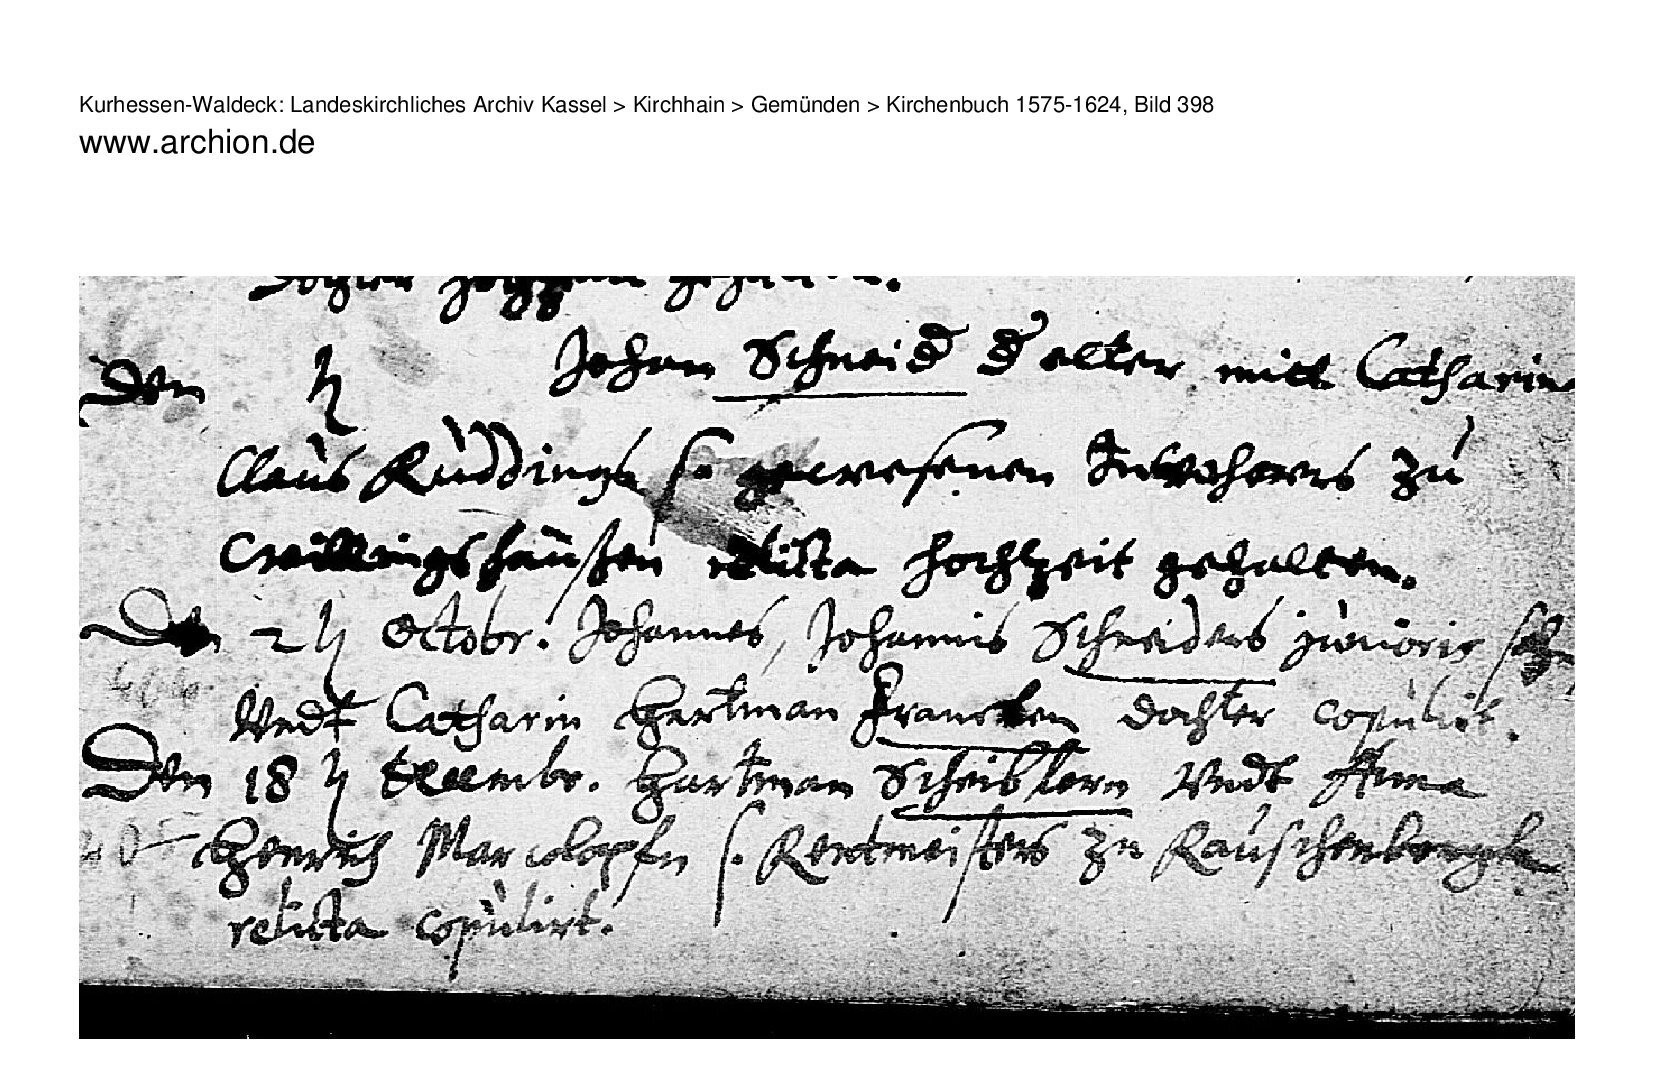 Kurhessen-Waldeck: Landeskirchliches Archiv Kassel > Kirchhain > Gemünden > Kirchenbuch 1575-1624, Bild 398
www.archion.de
Dochter Hochzeit gehalten.
Den ♄ Johan Schneid d elter mitt Catharin
Claus Ruddings s. gewesenen Inwohners zu
Willingshausen relicta hochzeit gehalten.
Den 2 ♄ Octobr. Johannes, Johannis Schneiders junioris sohn
Undt Catharin Hartman Francken dochter copulirt.
Den 18 ♄ Decembr. Hartman Scheiblern Undt Anna
Henrich s. Rentmeisters zu Rauschenbergk
relicta copulirt.